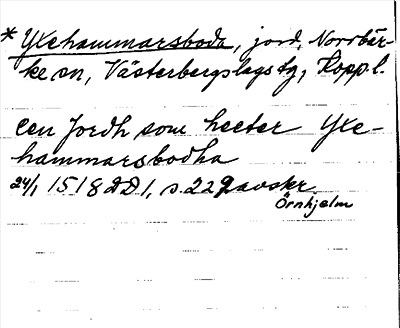 * Yxehammarsboda, jord, Norrbär-
ke sn, Västerbergslags tg, Koppl.
een Jordh som heeter Yxe-
hammarsbodha
24/1 1518 DD 1, s. 229 avskr.
Örnhjelm